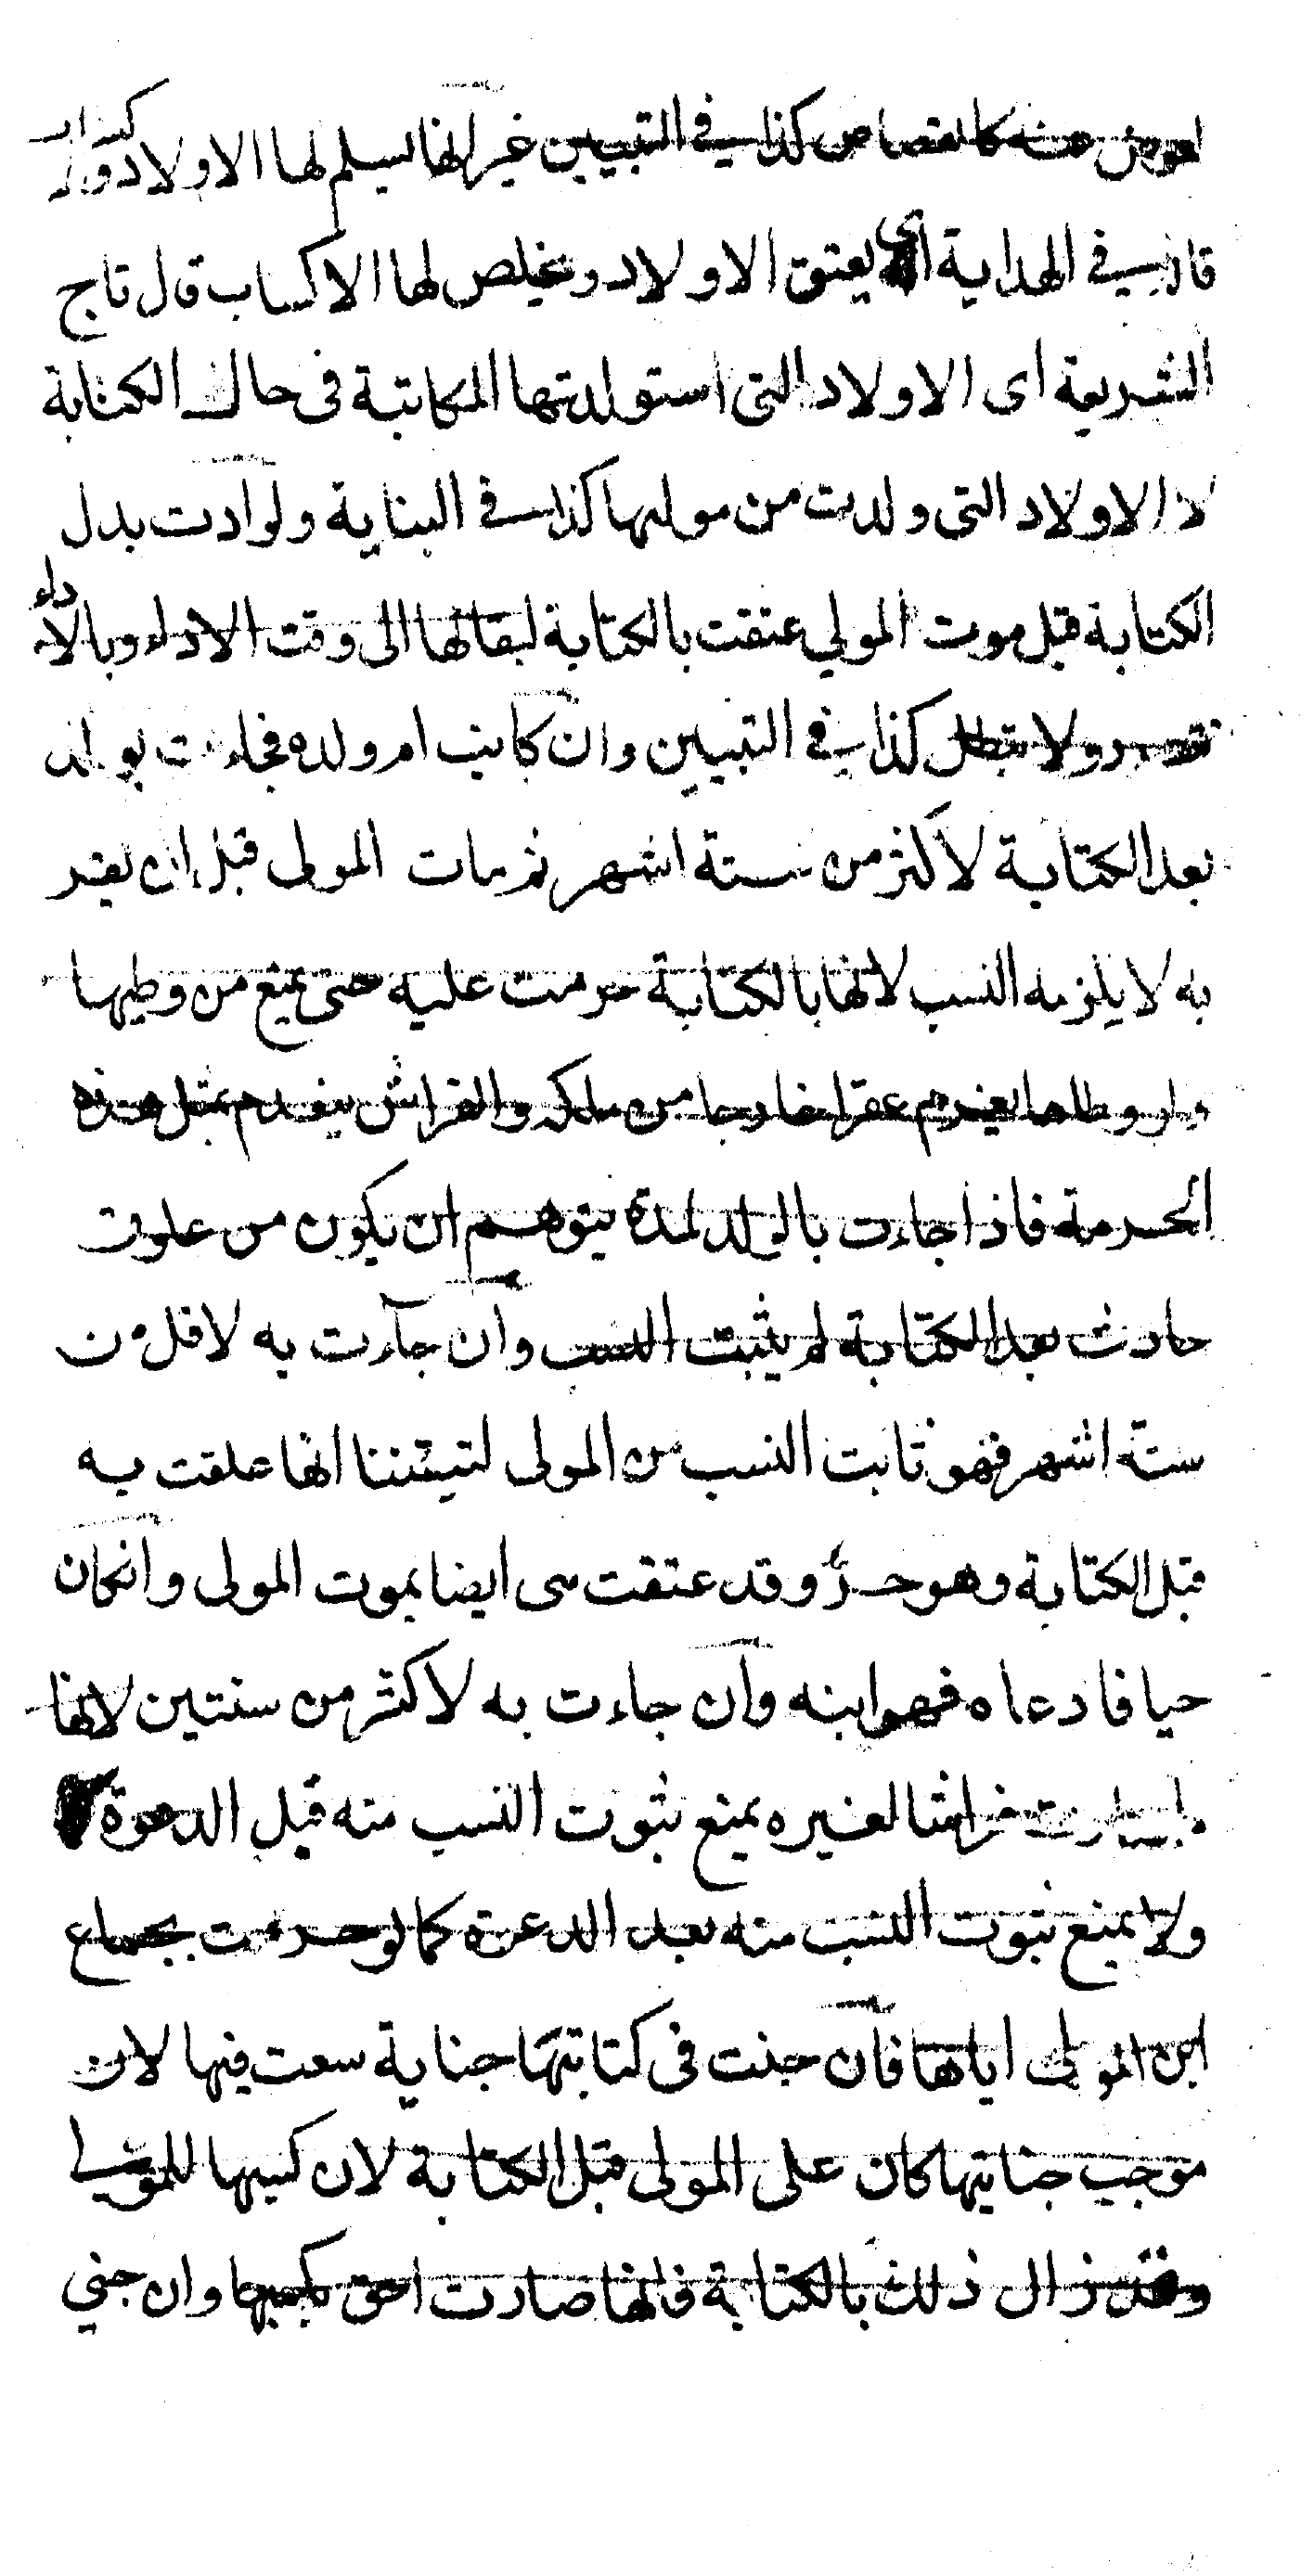 العوض عنه كالقصاص كذا في التبيين غير انها يسلم لها الاولاد والاكساب
قال في الهداية اى يعتق الاولاد ويخلص لها الاكساب قال تاج
الشريعة اى الاولاد التى استولدتها المكاتبة فى حال الكتابة
لا الاولاد التى ولدت من موليها كذا في البناية ولو ادت بدل
الكتابة قبل موت المولي عتقت بالكتابة لبقائها الى وقت الاداء وبالاداء
تتقرر ولا تبطل كذا في التبيين وان كاتب ام ولده فجاءت بولد
بعد الكتابة لاكثر من ستة اشهر ثم مات المولى قبل ان يقر
به لا يلزمه النسب لانها بالكتابة حرمت عليه حتى يمنع من وطيها
ولو وطاها يغرم عقرا خارجا من ملكه والفراش ينعدم بمثل هذه
الحرمة فاذا جاءت بالولد لمدة يتوهم ان يكون من علوق
حادث بعد الكتابة لم يثبت النسب وان جآءت به لاقل من
ستة اشهر فهو ثابت النسب من المولى لتيقننا انها علقت به
قبل الكتابة وهو حرّ وقد عتقت هى ايضا بموت المولى وانكان
حيا فادعاه فهو ابنه وان جاءت به لاكثر من سنتين لانها
ما صارت فراشا لغيره يمنع ثبوت النسب منه قبل الدعوة
ولا يمنع ثبوت النسب منه بعد الدعوة كما لو حرمت بجماع
ابن المولى اياها فان جنت فى كتابتها جناية سعت فيها لان
موجب جنايتها كان على المولى قبل الكتابة لان كسبها للمولى
وقد زال ذلك بالكتابة فانها صارت احق بكسبها وان جني